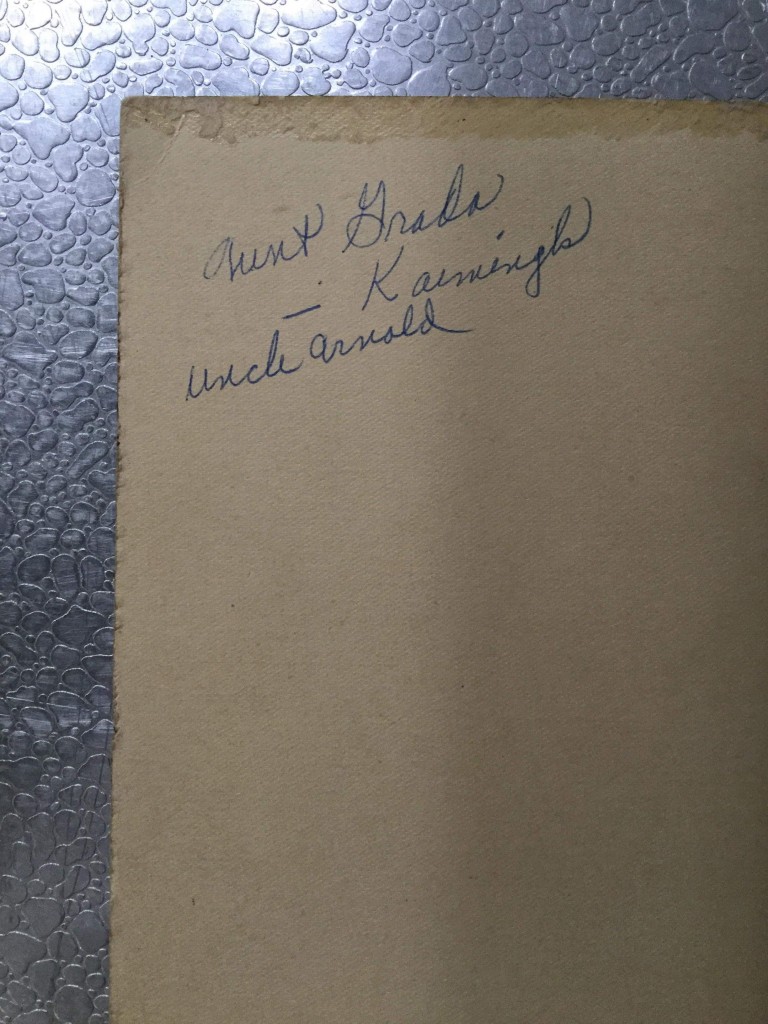 Aunt Grada
- Kaemingk
Uncle Arnold